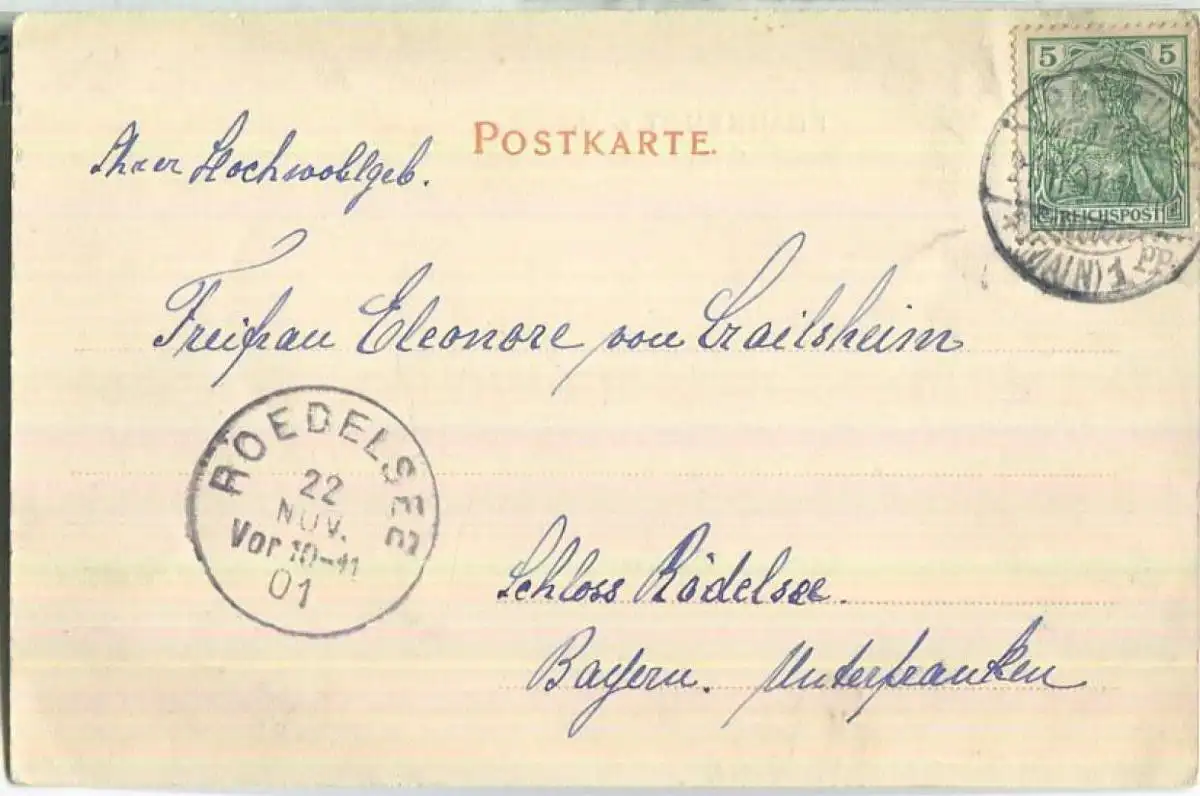 POSTKARTE.
5 5
REICHSPOST
(MAIN) 1 PP.
Ihrer Hochwohlgeb.
Freifrau Eleonore von Crailsheim
ROEDELSEE
22
NOV.
Vor 10-11
01
Schloss Rödelsee.
Bayern. Unterfranken